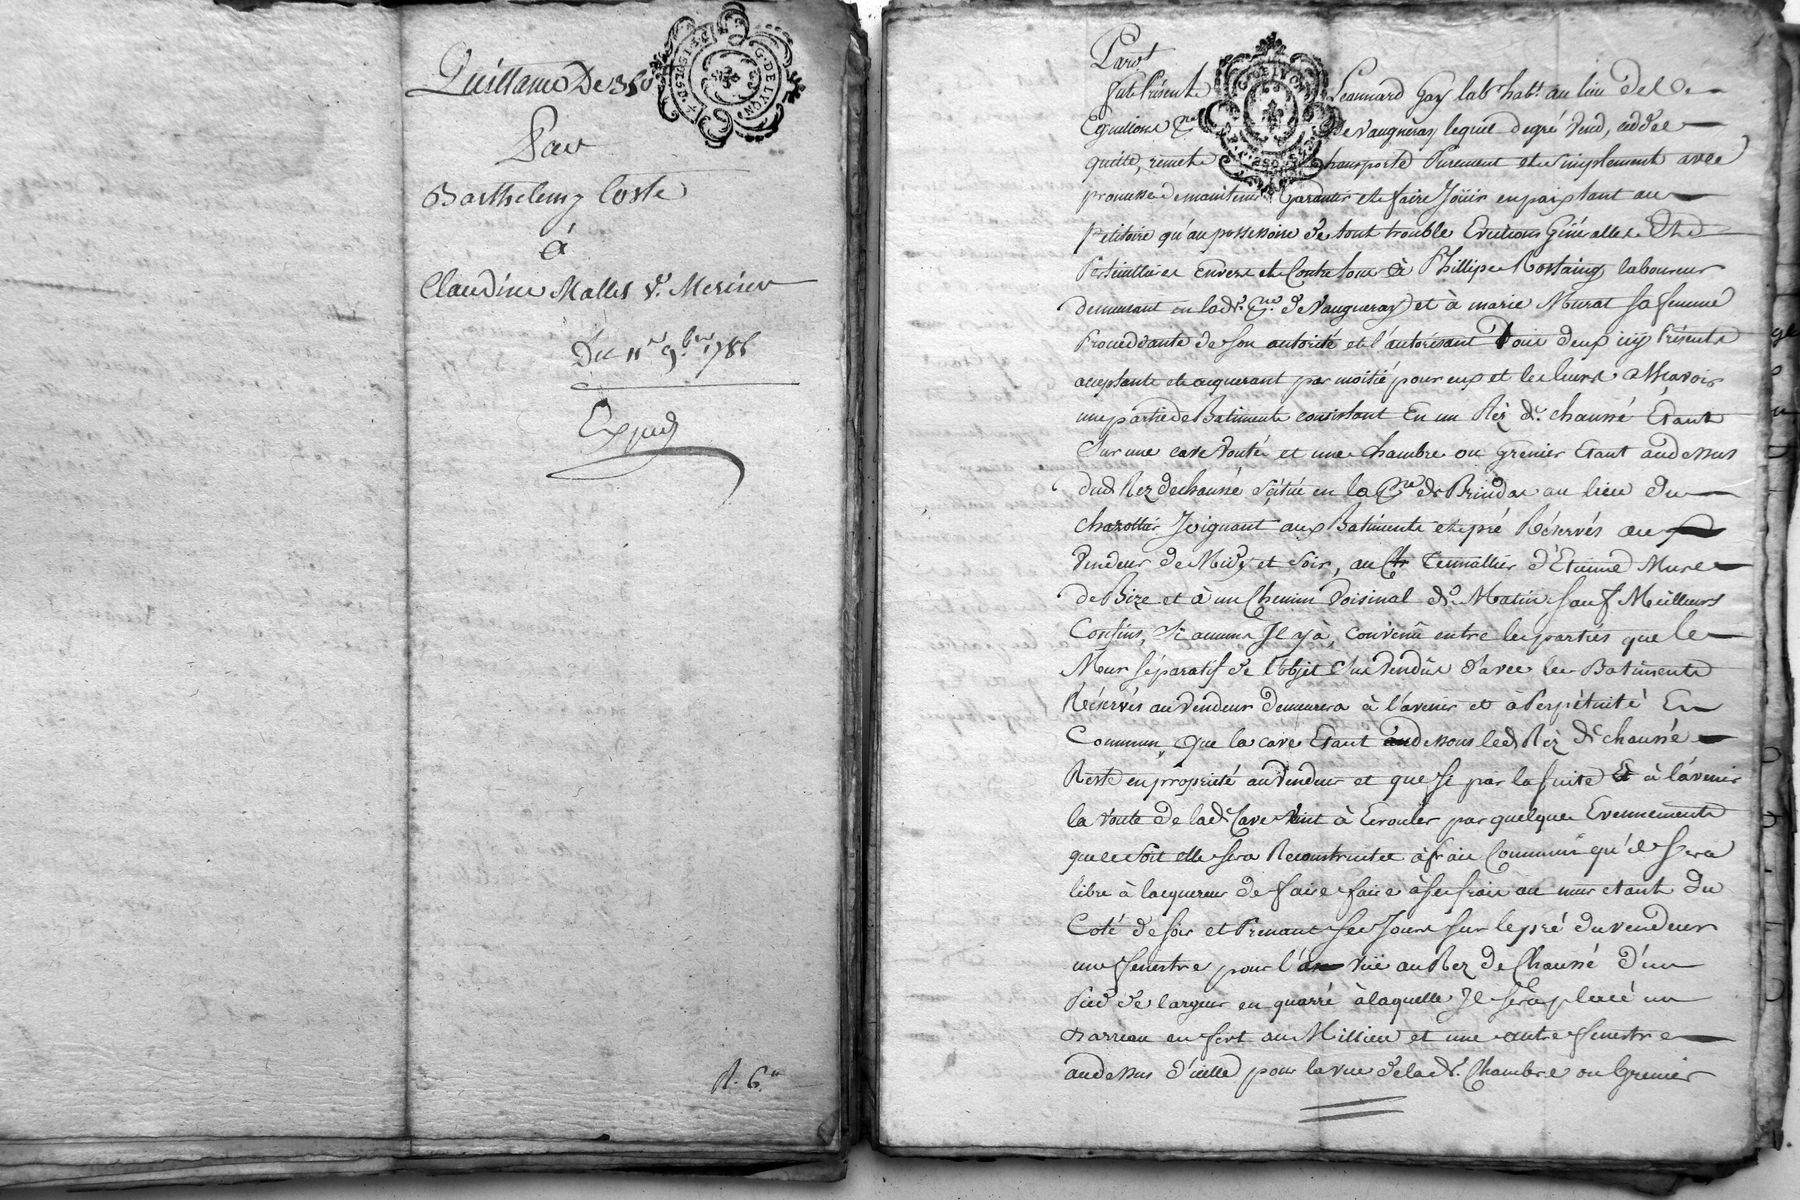 Quittance De 350
Par
Barthelemy Coste
à
Claudine Mallet Ve. Mercier
Du 11e 9bre 1786
Exped
R. 6.
G. DE LYON
Parvt
fut Présent Leonnard Gay lab. habt. au lieu de
de Vaugneray lequel degré vend, cedde
quitte, remet transporte Purement et simplement avec
promesse de maintenir Garantir et faire Joüir en paix tant au
Petitoire qu'au possessoire de tout trouble Evictions Généralles Et
Particulliere envers et Contre tous à Phillipe Rostaing laboureur
demeurant en lade. de Vaugneray et à marie Murat sa femme
Proceddante de son autorité et l'autorisant tous deux icy Présents
acceptants et acquerant par moitié pour eux et les leurs Assavoir
une partie de Batiments consistant En un Réz de chaussé Étant
Sur une cave voutée et une chambre ou Grenier Etant audessus
dud Rez dechaussé scitué en la de Brindas au lieu du
charottier Joignant aux Batiments et pré Réservés au
vendeur de Midy et soir, au Tenuallier d'Etienne Mure
de Bize et à un Chemin Voisinal de Matin sauf Meilleurs
Confins, Si aucuns Il y à, convenû entre les parties que le
Mur séparatif de l'objet Sus vendüe d'avec les Batiments
Réservés au vendeur demeurera à l'avenir et à Perpétuité En
Commun, Que la cave Etant audessous led Réz de chaussé
Reste en propriété au Vendeur et que Si par la suite Et à l'avenir
la voute de lade Cave vint à Ecrouler par quelque Evennements
que ce soit elle sera Reconstruitte à frais Communs qu'il Sera
libre à lacquereur de faire faire à ses frais au mur etant du
Coté de soir et Prenant ses Jours sur le pré du vendeur
une fenestre pour l'a Vüe au Rez de Chaussé d'un
Pied de largeur en quarré à laquelle Il sera placé un
Barreau en fert au Millieu et une autre fenestre
audessus d'icelle pour la vue de lade. Chambre ou Grenier